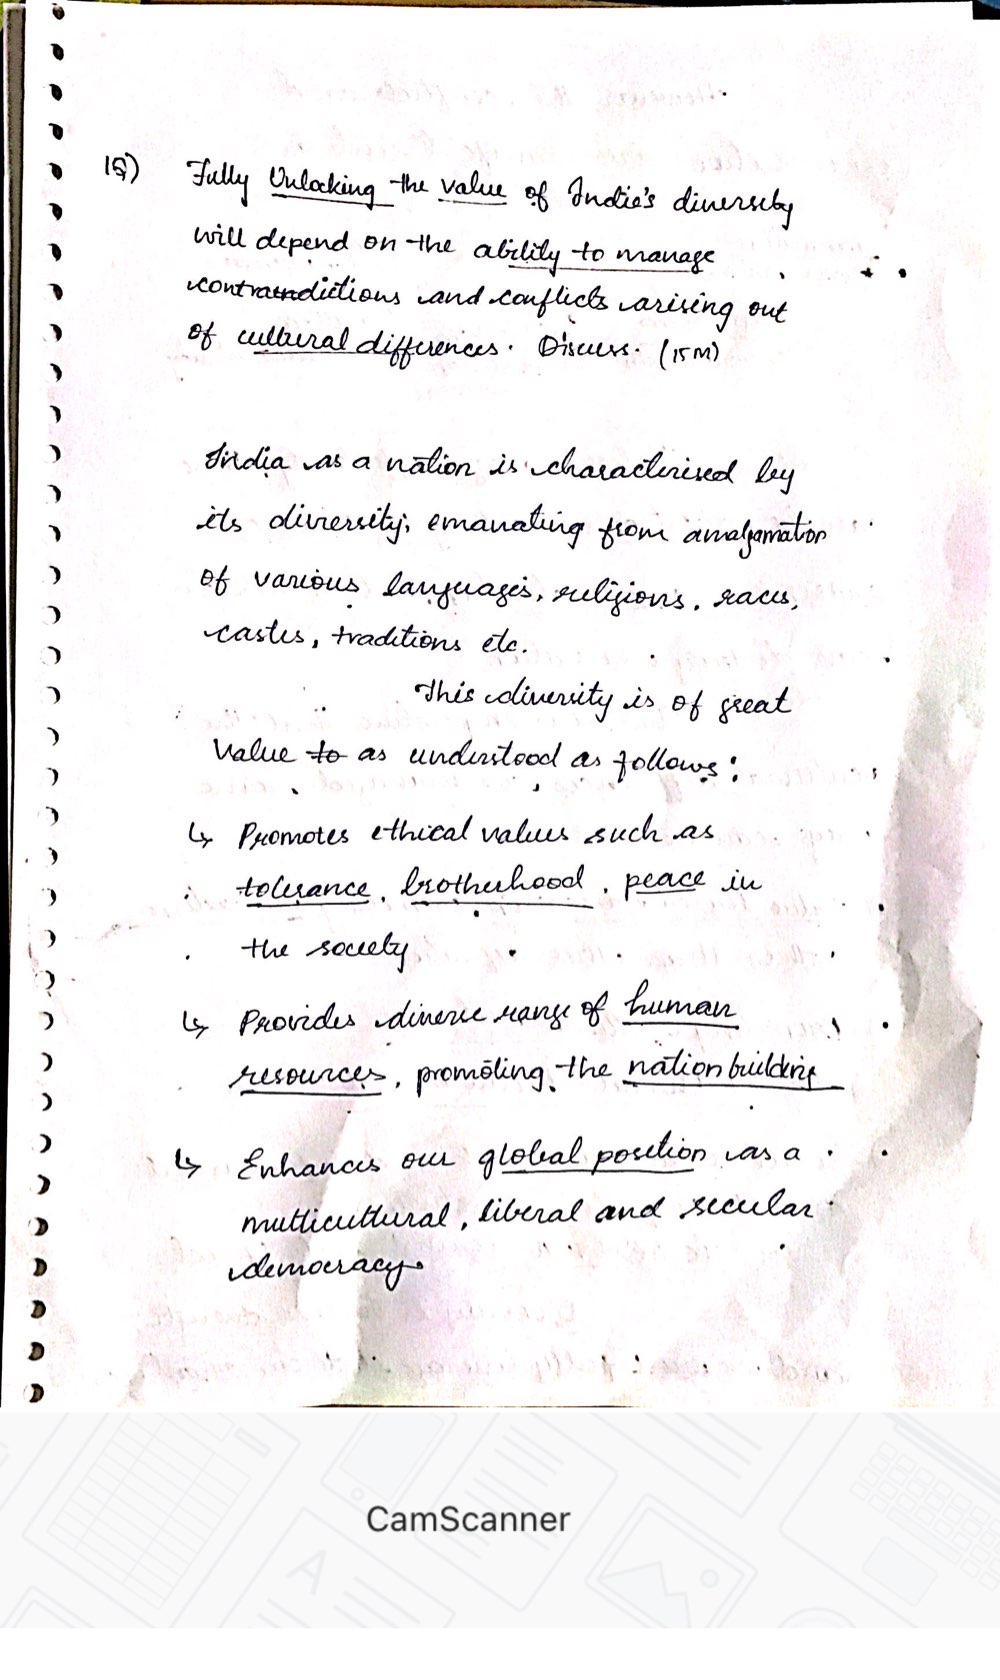 1Q) Fully Unlocking the value of India's diversity
will depend on the ability to manage
contradictions and conflicts arising out
of cultural differences. Discuss. (15M)
India as a nation is characterised by
its diversity, emanating from amalgamation
of various languages, religions, races,
castes, traditions etc.
This diversity is of great
value to as understood as follows:
↳ Promotes ethical values such as
tolerance, brotherhood, peace in
the society
↳ Provides diverse range of human
resources, promoting the nation building
↳ Enhances our global position as a
multicultural, liberal and secular
democracy.
CamScanner